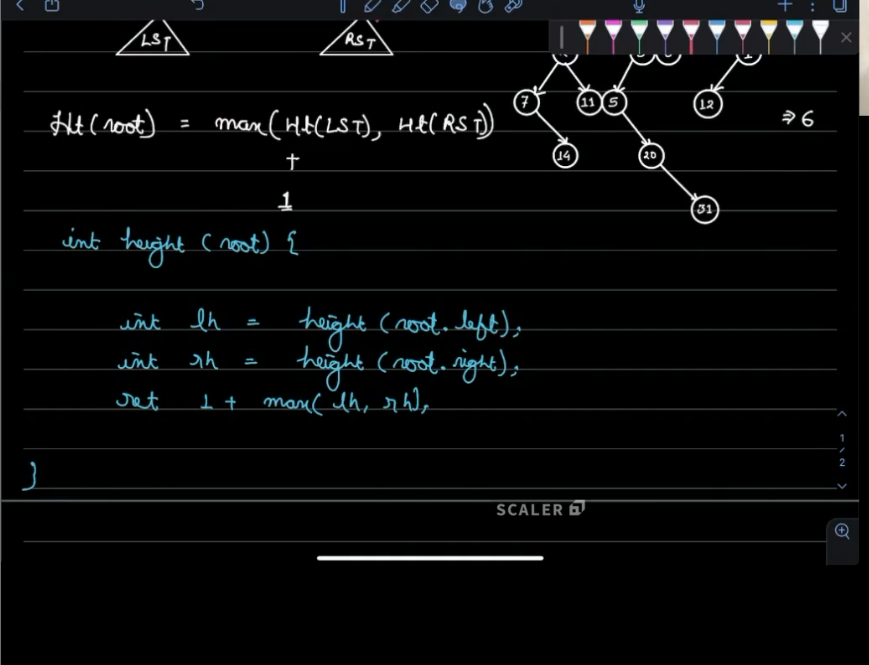 LST RST
7 11 5 12
Ht(root) = max(Ht(LST), Ht(RST)) ⇒ 6
+
14 20
1
31
int height (root) {
int lh = height (root. left);
int rh = height (root. right);
ret 1 + max( lh, rh);
}
1
/
2
SCALER